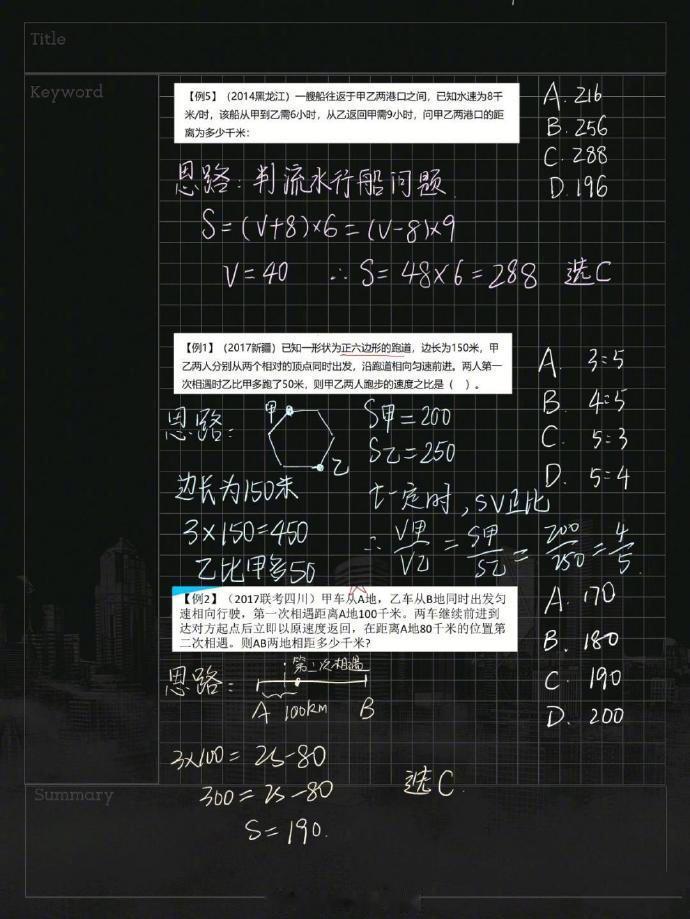 Title
Keyword
【例5】（2014黑龙江）一艘船往返于甲乙两港口之间，已知水速为8千
米/时，该船从甲到乙需6小时，从乙返回甲需9小时，问甲乙两港口的距
离为多少千米：
A. 216
B. 256
C. 288
D. 196
思路：判流水行船问题
S=(V+8)×6=(V-8)×9
V=40 ∴S=48×6=288 选C
【例1】（2017新疆）已知一形状为正六边形的跑道，边长为150米，甲
乙两人分别从两个相对的顶点同时出发，沿跑道相向匀速前进。两人第一
次相遇时乙比甲多跑了50米，则甲乙两人跑步的速度之比是（ ）。
A. 3:5
B. 4:5
C. 5:3
D. 5:4
思路：
甲
乙
S甲=200
S乙=250
边长为150米
3×150=450
乙比甲多50
t一定时，SV正比
∴ V甲/V乙 = S甲/S乙 = 200/250 = 4/5
【例2】（2017联考四川）甲车从A地，乙车从B地同时出发匀
速相向行驶，第一次相遇距离A地100千米。两车继续前进到
达对方起点后立即以原速度返回，在距离A地80千米的位置第
二次相遇。则AB两地相距多少千米？
A. 170
B. 180
C. 190
D. 200
思路：
第一次相遇
A 100km B
3×100=2S-80
300=2S-80
S=190.
选C.
Summary